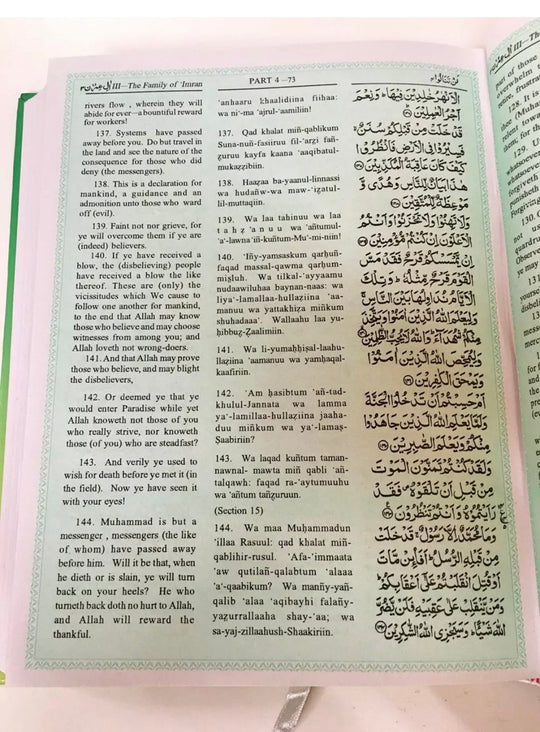 اٰل عمرٰن ٣ III—The Family of ‘Imran
PART 4 –73
لن تنالوا ٤
rivers flow , wherein they will
abide for ever—a bountiful reward
for workers!
137. Systems have passed
away before you. Do but travel in
the land and see the nature of the
consequence for those who did
deny (the messengers).
138. This is a declaration for
mankind, a guidance and an
admonition unto those who ward
off (evil).
139. Faint not nor grieve, for
ye will overcome them if ye are
(indeed) believers.
140. If ye have received a
blow, the (disbelieving) people
have received a blow the like
thereof. These are (only) the
vicissitudes which We cause to
follow one another for mankind,
to the end that Allah may know
those who believe and may choose
witnesses from among you; and
Allah loveth not wrong-doers.
141. And that Allah may prove
those who believe, and may blight
the disbelievers,
142. Or deemed ye that ye
would enter Paradise while yet
Allah knoweth not those of you
who really strive, nor knoweth
those (of you) who are steadfast?
143. And verily ye used to
wish for death before ye met it (in
the field). Now ye have seen it
with your eyes!
144. Muhammad is but a
messenger , messengers (the like
of whom) have passed away
before him. Will it be that, when
he dieth or is slain, ye will turn
back on your heels? He who
turneth back doth no hurt to Allah,
and Allah will reward the
thankful.
‘anhaaru Khaalidiina fiihaa:
wa ni-ma ‘ajrul-‘aamiliin!
137. Qad khalat miñ-qablikum
Suna-nuñ-fasiiruu fil-‘arẓi fañ-
ẓuruu kayfa kaana ‘aaqibatul-
mukaẓẓibiin.
138. Haaẓaa ba-yaanul-linnassi
wa hudañw-wa maw-‘iẓatul-
lil-muttaqiin.
139. Wa laa tahinuu wa laa
tahẓanuu wa’añtumul-
‘a‘-lawna ‘iñ-kuñtum-Mu’-mi-niin!
140. ‘Iñy-yamsaskum qarḥuñ-
faqad massal-qawma qarḥum-
miṣluh. Wa tilkal-‘ayyaamu
nudaawiluhaa baynan-naas: wa
liya‘-lamallaa-hullaẓiina ‘aa-
manuu wa yattakhiẓa miñkum
shuhadaaa’. Wallaahu laa yu-
ḥibbuẓ-Ẓaalimiin.
141. Wa li-yumaḥḥiṣal-laahu-
llaẓiina ‘aamanuu wa yamḥaqal-
kaafiriin.
142. ‘Am ḥasibtum ‘añ-tad-
khulul-Jannata wa lamma
ya‘-lamillaa-hullaẓiina jaaha-
duu miñkum wa ya‘-lamaṣ-
Ṣaabiriin?
143. Wa laqad kuñtum taman-
nawnal- mawta miñ qabli ‘añ-
talqawh: faqad ra-‘aytumuuhu
wa ‘añtum tañẓuruun.
(Section 15)
144. Wa maa Muḥammadun
‘illaa Rasuul: qad khalat miñ-
qablihir-rusul. ‘Afa-‘immaata
‘aw qutilañ-qalabtum ‘alaaa
‘a‘-qaabikum? Wa manñy-yañ-
qalib ‘alaa ‘aqibayhi falañy-
yaẓurrallaaha shay-‘aa; wa
sa-yaj-zillaahush-Shaakiriin.
الْاَنْهٰرُ خٰلِدِيْنَ فِيْهَا ؕ وَنِعْمَ
اَجْرُ الْعٰمِلِيْنَ ﴿۱۳۶﴾
قَدْ خَلَتْ مِنْ قَبْلِكُمْ سُنَنٌ ۙ
فَسِيْرُوْا فِى الْاَرْضِ فَانْظُرُوْا
كَيْفَ كَانَ عَاقِبَةُ الْمُكَذِّبِيْنَ ﴿۱۳۷﴾
هٰذَا بَيَانٌ لِّلنَّاسِ وَهُدًى وَّ
مَوْعِظَةٌ لِّلْمُتَّقِيْنَ ﴿۱۳۸﴾
وَلَا تَهِنُوْا وَلَا تَحْزَنُوْا وَاَنْتُمُ
الْاَعْلَوْنَ اِنْ كُنْتُمْ مُّؤْمِنِيْنَ ﴿۱۳۹﴾
اِنْ يَّمْسَسْكُمْ قَرْحٌ فَقَدْ مَسَّ
الْقَوْمَ قَرْحٌ مِّثْلُهٗ ؕ وَتِلْكَ
الْاَيَّامُ نُدَاوِلُهَا بَيْنَ النَّاسِ ۚ
وَلِيَعْلَمَ اللّٰهُ الَّذِيْنَ اٰمَنُوْا وَيَتَّخِذَ
مِنْكُمْ شُهَدَآءَ ؕ وَاللّٰهُ لَا يُحِبُّ الظّٰلِمِيْنَ ﴿۱۴۰﴾
وَلِيُمَحِّصَ اللّٰهُ الَّذِيْنَ اٰمَنُوْا
وَيَمْحَقَ الْكٰفِرِيْنَ ﴿۱۴۱﴾
اَمْ حَسِبْتُمْ اَنْ تَدْخُلُوا الْجَنَّةَ
وَلَمَّا يَعْلَمِ اللّٰهُ الَّذِيْنَ جَاهَدُوْا
مِنْكُمْ وَيَعْلَمَ الصّٰبِرِيْنَ ﴿۱۴۲﴾
وَلَقَدْ كُنْتُمْ تَمَنَّوْنَ الْمَوْتَ
مِنْ قَبْلِ اَنْ تَلْقَوْهُ ۪ فَقَدْ
رَاَيْتُمُوْهُ وَاَنْتُمْ تَنْظُرُوْنَ ﴿۱۴۳﴾
وَمَا مُحَمَّدٌ اِلَّا رَسُوْلٌ ۚ قَدْ خَلَتْ
مِنْ قَبْلِهِ الرُّسُلُ ؕ اَفَا۟ئِنْ مَّاتَ
اَوْ قُتِلَ انْقَلَبْتُمْ عَلٰٓى اَعْقَابِكُمْ ؕ
وَمَنْ يَّنْقَلِبْ عَلٰى عَقِبَيْهِ فَلَنْ يَّضُرَّ
اللّٰهَ شَيْـًٔا ؕ وَسَيَجْزِى اللّٰهُ الشّٰكِرِيْنَ ﴿۱۴۴﴾